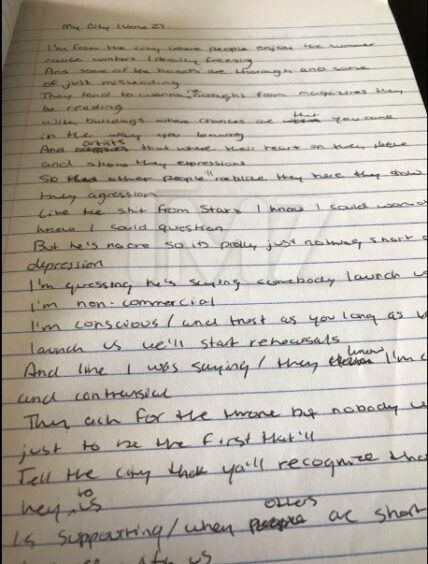 My City (Verse 2)
I'm from the city where people enjoy the summer
cause winters literally freezing
And some of the hoods are thorough and some
of just misleading
They tend to wanna be thoughs from magazines they
be reading
With buildings where chances are that you came
in the way you leaving
And artists that where their heart on they sleeve
and show they expressions
So other people'll realize they here they show
they agression
Like the shit from Starx I know I could
know I could question
But he's no cre so its polly just nothing short o
depression
I'm guessing he's saying somebody launch us
I'm non-commercial
I'm conscious / and trust as you long as
launch us we'll start rehearsals
And like I was saying / they know I'm c
and contraversial
They ask for the throne but nobody
just to be the first that'll
Tell the city that ya'll recognize tha
hey, to us
Is supporting / when others ac short
us
TMZ